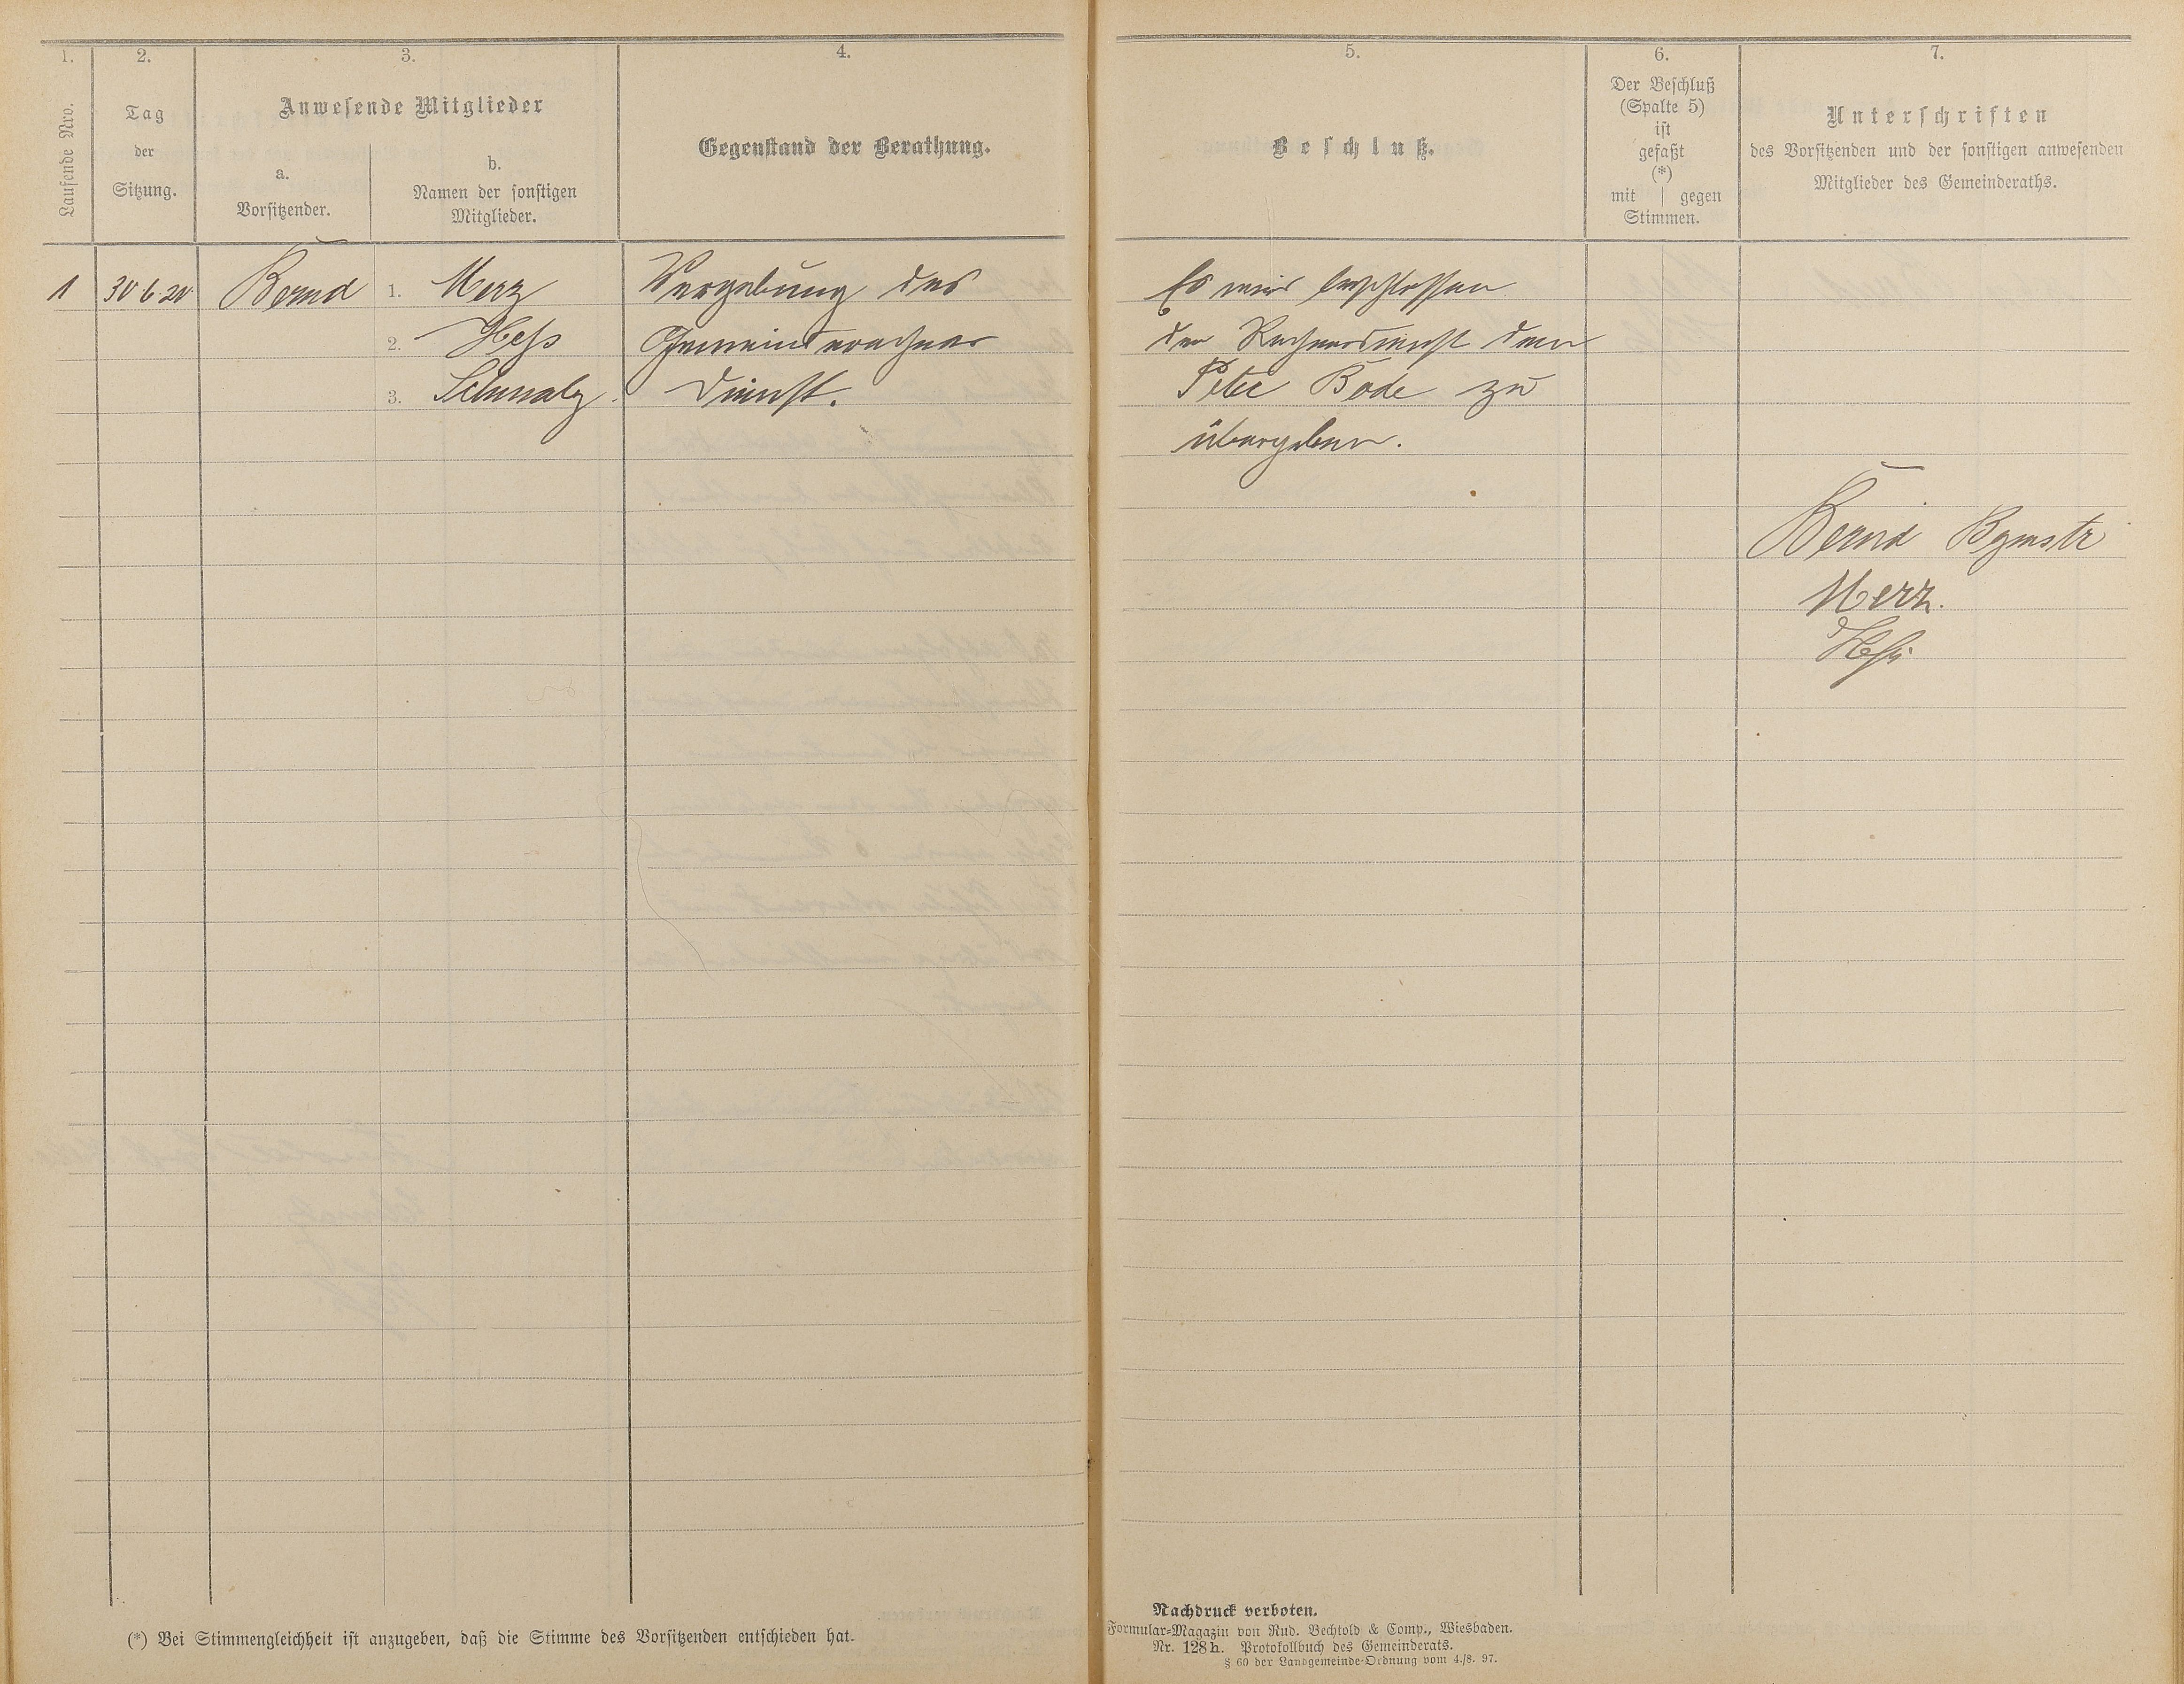 1.
2.
3.
4.
Laufende Nro.
Tag
der
Sitzung.
Anwesende Mitglieder
a.
Vorsitzender.
b.
Namen der sonstigen
Mitglieder.
Gegenstand der Berathung.
1 30.6.20 Bernd 1. Merz Vergebung des
2. Hess Gemeinderechner
3. Schmalz. Dienst.
(*) Bei Stimmengleichheit ist anzugeben, daß die Stimme des Vorsitzenden entschieden hat.
5.
6.
7.
Beschluß.
Der Beschluß
(Spalte 5)
ist
gefaßt
(*)
mit | gegen
Stimmen.
Unterschriften
des Vorsitzenden und der sonstigen anwesenden
Mitglieder des Gemeinderaths.
Es wird beschlossen
den Rechnerdienst dem
Peter Bode zu
übergeben.
Bernd Bgmstr
Merz.
Heß
Nachdruck verboten.
Formular-Magazin von Rud. Bechtold & Comp., Wiesbaden.
Nr. 128h. Protokollbuch des Gemeinderats.
§ 60 der Landgemeinde-Ordnung vom 4./8. 97.